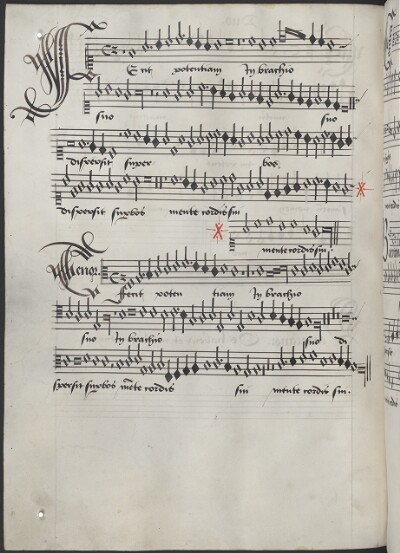 Fecit potentiam In brachio
suo suo
dispersit super bos
dispersit supbos mente cordis sui
mente cordis sui.
Tenor.
Fecit poten tiam In brachio
suo In brachio suo di
spersit supbos mete cordis sui mente cordis sui.